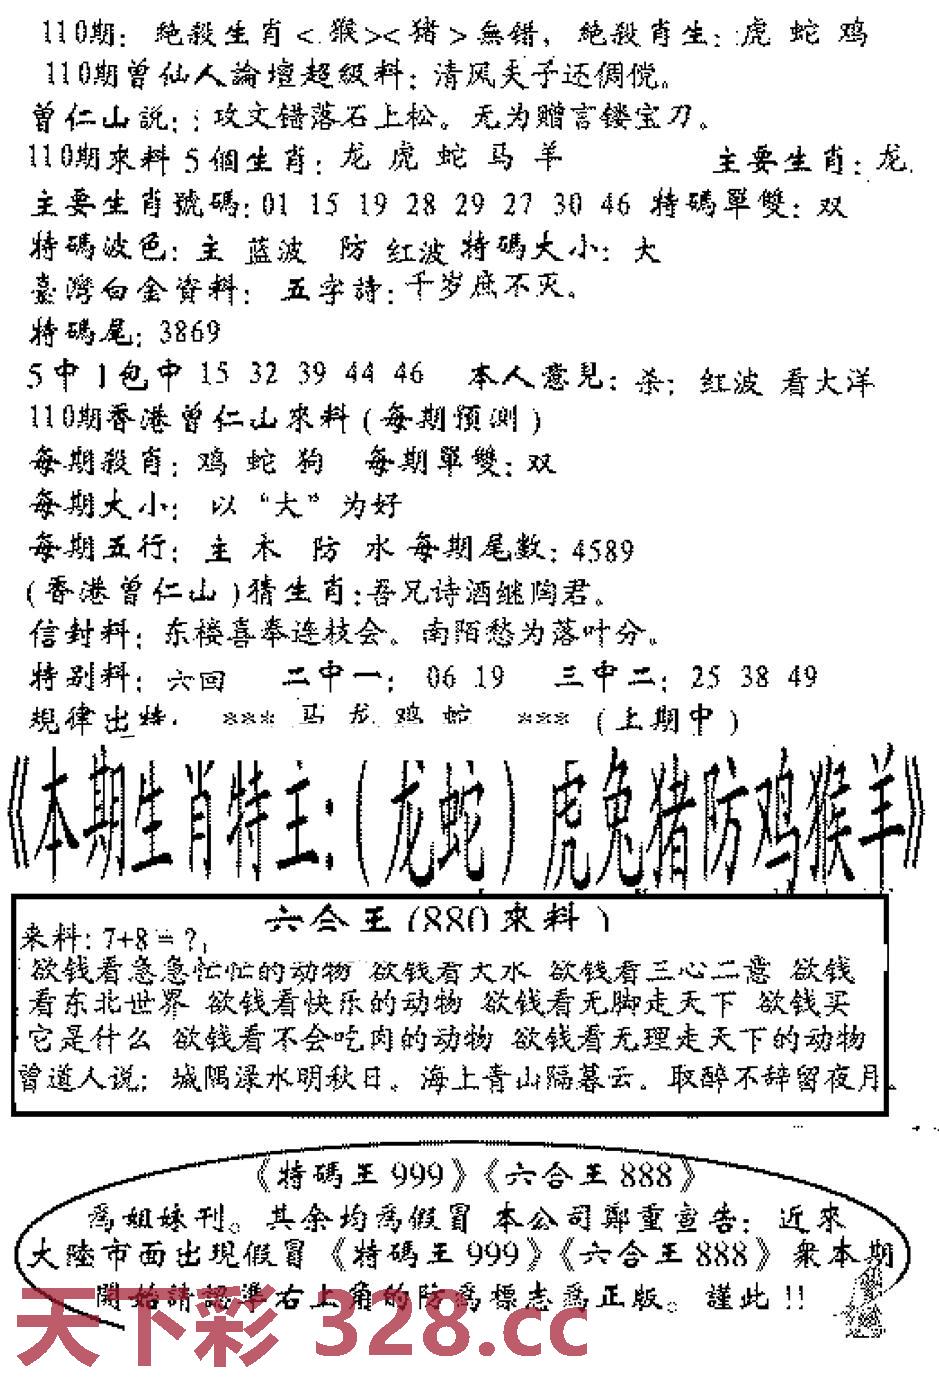 110期：絶殺生肖<猴><猪>無错，絶殺肖生：虎 蛇 鸡
110期曾仙人論壇超級料：清风天子还倜傥。
曾仁山説：；攻文错落石上松。无为赠言镂宝刀。
110期來料5個生肖：龙 虎 蛇 马 羊 主要生肖：龙.
主要生肖號碼：01 15 19 28 29 27 30 46 特碼單雙：双
特碼波色：主 蓝波 防 红波 特碼大小：大
臺灣白金資料： 五字詩：千岁庶不灭。
特碼尾：3869
5中1包中 15 32 39 44 46 本人意見：杀；红波 看大洋
110期香港曾仁山來料(每期預測)
每期殺肖：鸡 蛇 狗 每期單雙：双
每期大小： 以“大”为好
每期五行：主 木 防 水 每期尾數：4589
(香港曾仁山)猜生肖：吾兄诗酒继陶君。
信封料：东楼喜奉连枝会。南陌愁为落叶分。
特别料：六回 二中一：06 19 三中二：25 38 49
規律出特： *** 马 龙 鸡 蛇 *** (上期中)
《本期生肖特主：(龙蛇)虎兔猪防鸡猴羊》
六合王(880來料)
来料：7+8=？
欲钱看急急忙忙的动物 欲钱看大水 欲钱看三心二意 欲钱
看东北世界 欲钱看快乐的动物 欲钱看无脚走天下 欲钱买
它是什么 欲钱看不会吃肉的动物 欲钱看无理走天下的动物
曾道人说：城隅渌水明秋日。海上青山隔暮云。取醉不辞留夜月。
《特碼王999》《六合王888》
爲姐妹刊。其余均爲假冒 本公司鄭重宣告：近來
大陸市面出現假冒《特碼王999》《六合王888》衆本期
開始請認準右上角的防爲標志爲正版。謹此!!
天下彩 328.cc